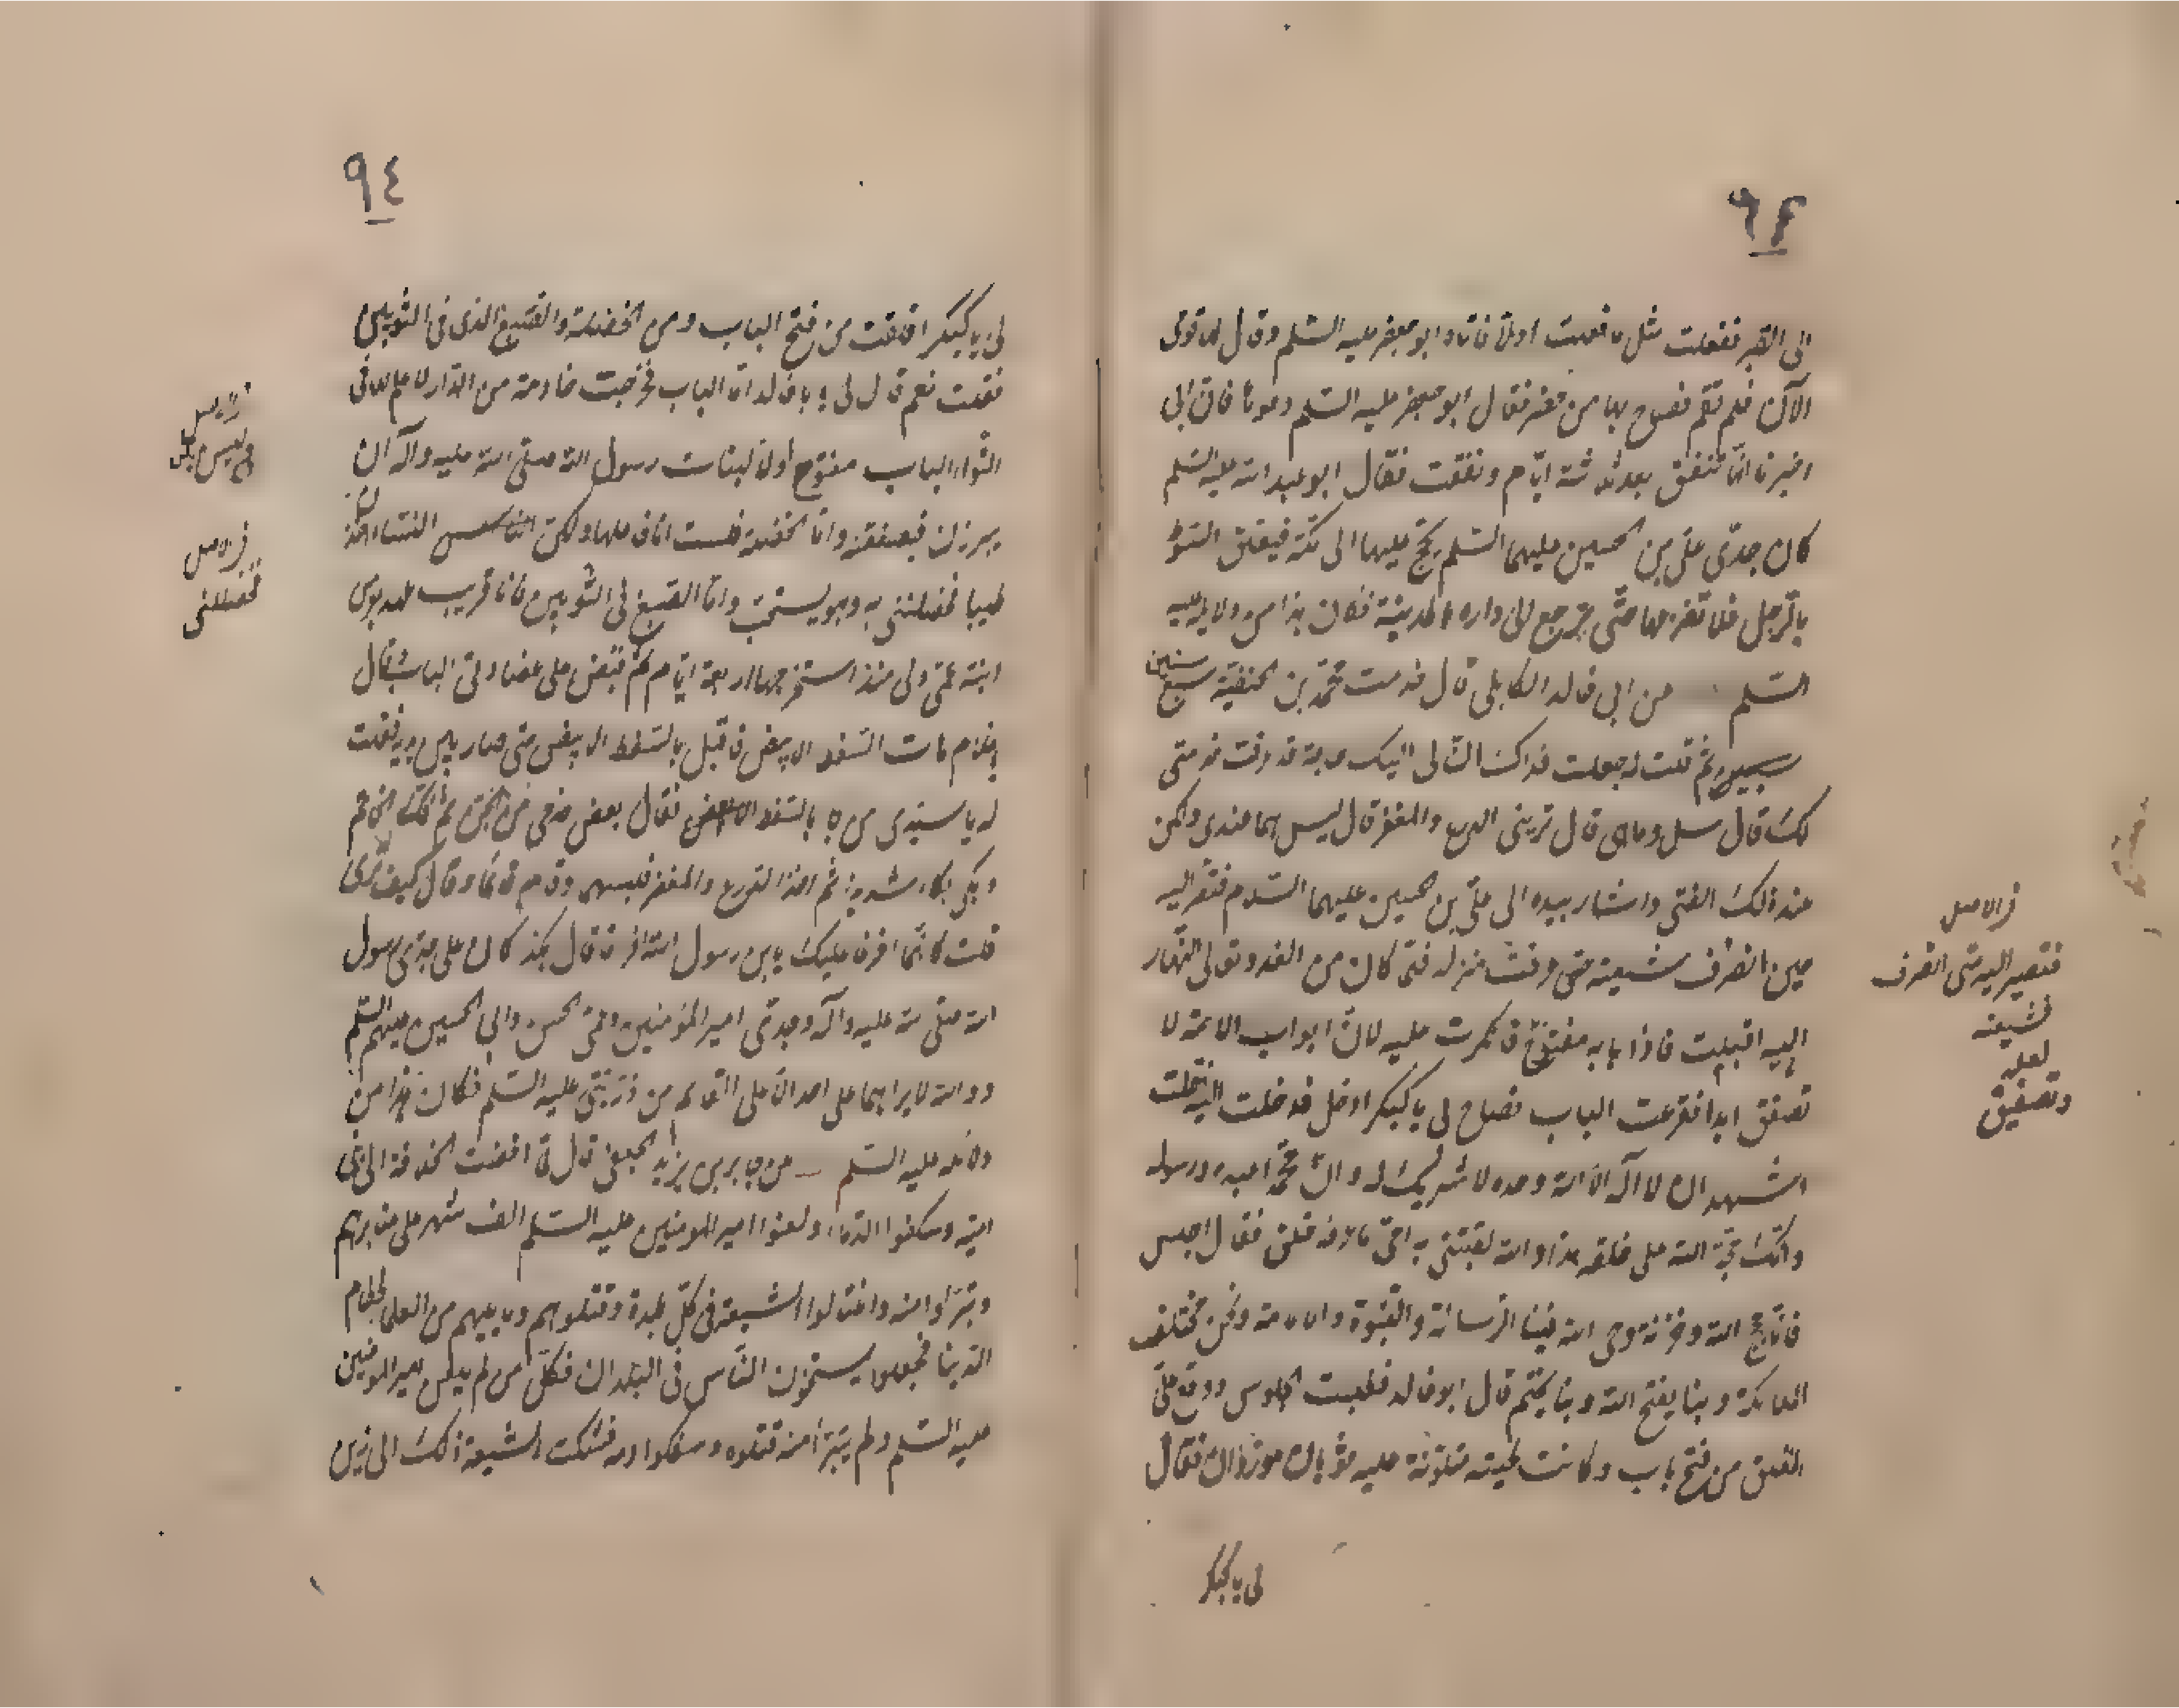 ٩٤
الى القبر ففعلت مثل ما فعلت اولا فاتاه ابو جعفر عليه السّلم وقال لها قومى
الآن فلم تقم فصاح بها من فقال ابو جعفر عليه السّلم دعونا فان ابى
اخبرنا انّها تنفق بعد ثلثة ايّام ونفقت فقال ابو عبد الله عليه السّلم
كان جدّى علىّ بن الحسين عليهما السّلم يحجّ عليها الى مكّة فيعلق السّوط
بالرّحل فلا تفرعها حتّى يرجع الى داره بالمدينة فكان هذا من دلايله عليه
السّلم عن ابى خالد الكابلى قال خدمت محمّد بن الحنفيّة سبع سنين
ثم قلت له جعلت فداك انّ لى اليك حاجة قد عرفت خدمتى
لك قال سل وما هى قال ترينى الدرع والمغفر قال ليس هما عندى ولكن
عند ذلك الفتى واشار بيده الى علىّ بن الحسين عليهما السّلام فنظر اليه
حين انصرف حتى عرفت منزله فلمّا كان من الغد وتعالى النّهار
اليه اقبلت فاذا بابه مفتوح فانكرت عليه لانّ ابواب الائمة لا
تصفق ابدا فقرعت الباب فصاح لى يا كنكر ادخل فدخلت اليه فقلت
اشهد ان لا اله الّا الله وحده لا شريك له وانّ محمّدا عبده ورسوله
وانّك حجّة الله على خلقه هذا والله لقبتنى به امّى ما عرفه خلق فقال اجلس
فانا حجج الله وخزنة وحى الله فينا الرّسالة والنّبوّة والامامة ونحن مختلف
الملائكة وبنا يفتح الله وبنا يختم قال ابو خالد فطلبت الجلوس
الغلق من فتح باب وكانت لحيته عليه ثوبان فقال
لى يا كنكر
فى الاصل
فتصير اليه حتى انصرف
لشيعته
لعله
وتصفيق
٩٤
لى يا كنكر اقلقت من فتح الباب ومن الخضلة والصّبغ الذى فى الثّوبين
فقلت نعم قال لى يا با خالد امّا الباب فخرجت خادمة من الدّار لا علم لها فى
الباب مفتوح اولا لبنات رسول الله صلّى الله عليه وآله ان
يبرزن فيصفقنه وامّا الخضلة فلست انا فاعلها ولكن النّساء اخذن
طيبا فخضلننى به وهو يستحبّ وامّا الصّبغ فى الثّوبين فانا قريب عهد بعرس
ابنة عمّى ولى منذ استخرجها اربعة ايّام ثم قبض على عضادتى الباب وقال
يا غلام هات السّفط الابيض فاقبل بالسّفط الابيض حتى صار بين يديه فقلت
له يا سيّدى بالسّفط الابيض فقال بعض خدمى من الجنّ ثم فكّ الخاتم
وبكى بكاء شديدا ثم اخذ الدّرع والمغفر فلبسهما وقام قائما وقال كيف ترى
قلت كانّما افرغا عليك يابن رسول الله افراغا قال هكذا كان على جدّى رسول
الله صلى الله عليه وآله وجدّى امير المؤمنين وعمّى الحسن وابى الحسين عليهم السّلم
ووالله لا يراهما على احد الّا على القائم من ذرّيّتى عليه السّلم فكان هذا من
دلائله عليه السّلم — عن جابر بن يزيد الجعفى قال لما افضت الخلافة الى بنى
اميّة وسفكوا الدّماء ولعنوا امير المؤمنين عليه السّلم الف شهر على منابرهم
وتبرّءوا منه واغتالوا الشيعة فى كلّ بلدة وقتلوهم من العلماء لحطام
الدّنيا فجعلوا يمتحنون النّاس فى البلدان فكلّ من لم يلعن امير المؤمنين
عليه السّلم ولم يتبرّأ منه قتلوه وسفكوا دمه فشكت الشيعة ذلك الى زين
فى الاصل
فى الاصل
فخضللنى